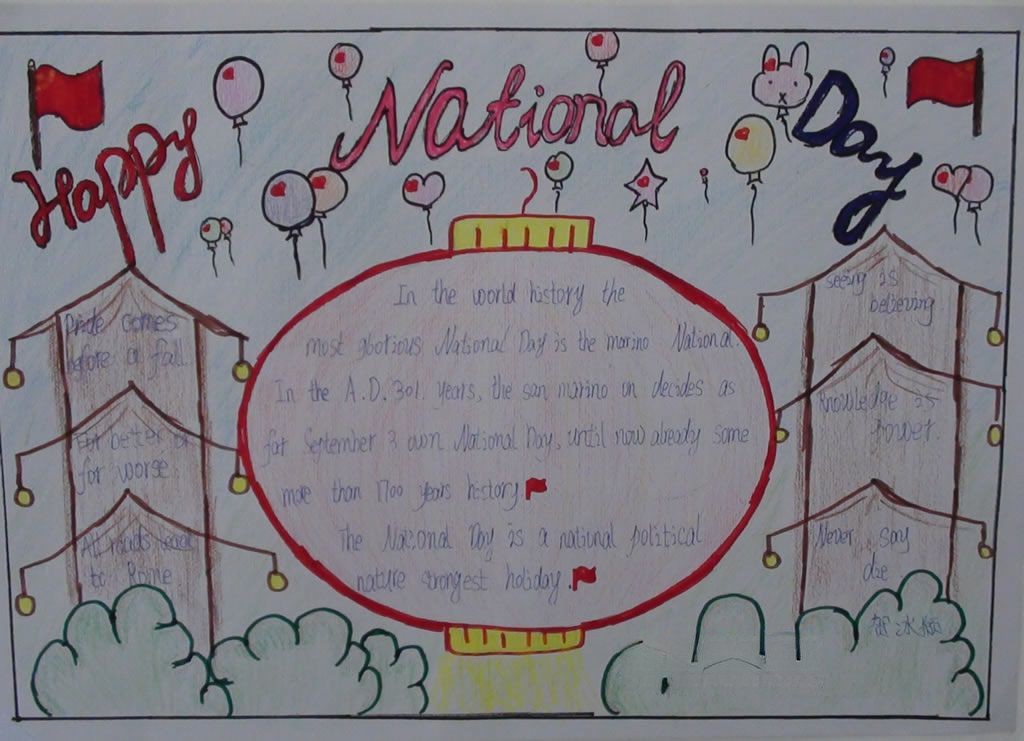 Happy National Day
Pride comes
before a fall.
For better or
for worse
All roads lead
to Rome
In the world history the
most glorious National Day is the marino National.
In the A.D.301. years, the san marino on decides as
far September 3 own National Day, until now already some
more than 1700 years history
The National Day is a national political
nature strongest holiday.
seeing is
believing
Knowledge is
power.
Never say
die